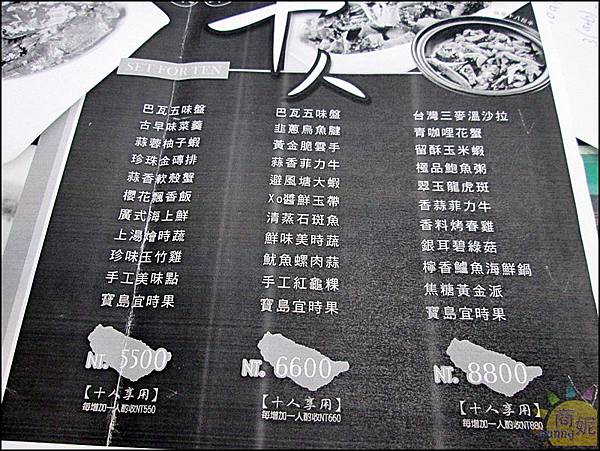 十人
SET FOR TEN
巴瓦五味盤
古早味菜羹
蒜蓉柚子蝦
珍珠金磚排
蒜香軟殼蟹
櫻花飄香飯
廣式海上鮮
上湯燴時蔬
珍味玉竹雞
手工美味點
寶島宜時果
NT. 5500
【十人享用】
每增加一人酌收NT550
巴瓦五味盤
韭蔥烏魚腱
黃金脆雲手
蒜香菲力牛
避風塘大蝦
Xo醬鮮玉帶
清蒸石斑魚
鮮味美時蔬
魷魚螺肉蒜
手工紅龜粿
寶島宜時果
NT. 6600
【十人享用】
每增加一人酌收NT660
台灣三麥溫沙拉
青咖哩花蟹
留酥玉米蝦
極品鮑魚粥
翠玉龍虎斑
香蒜菲力牛
香料烤春雞
銀耳碧綠菇
檸香鱸魚海鮮鍋
焦糖黃金派
寶島宜時果
NT. 8800
【十人享用】
每增加一人酌收NT880
商妮